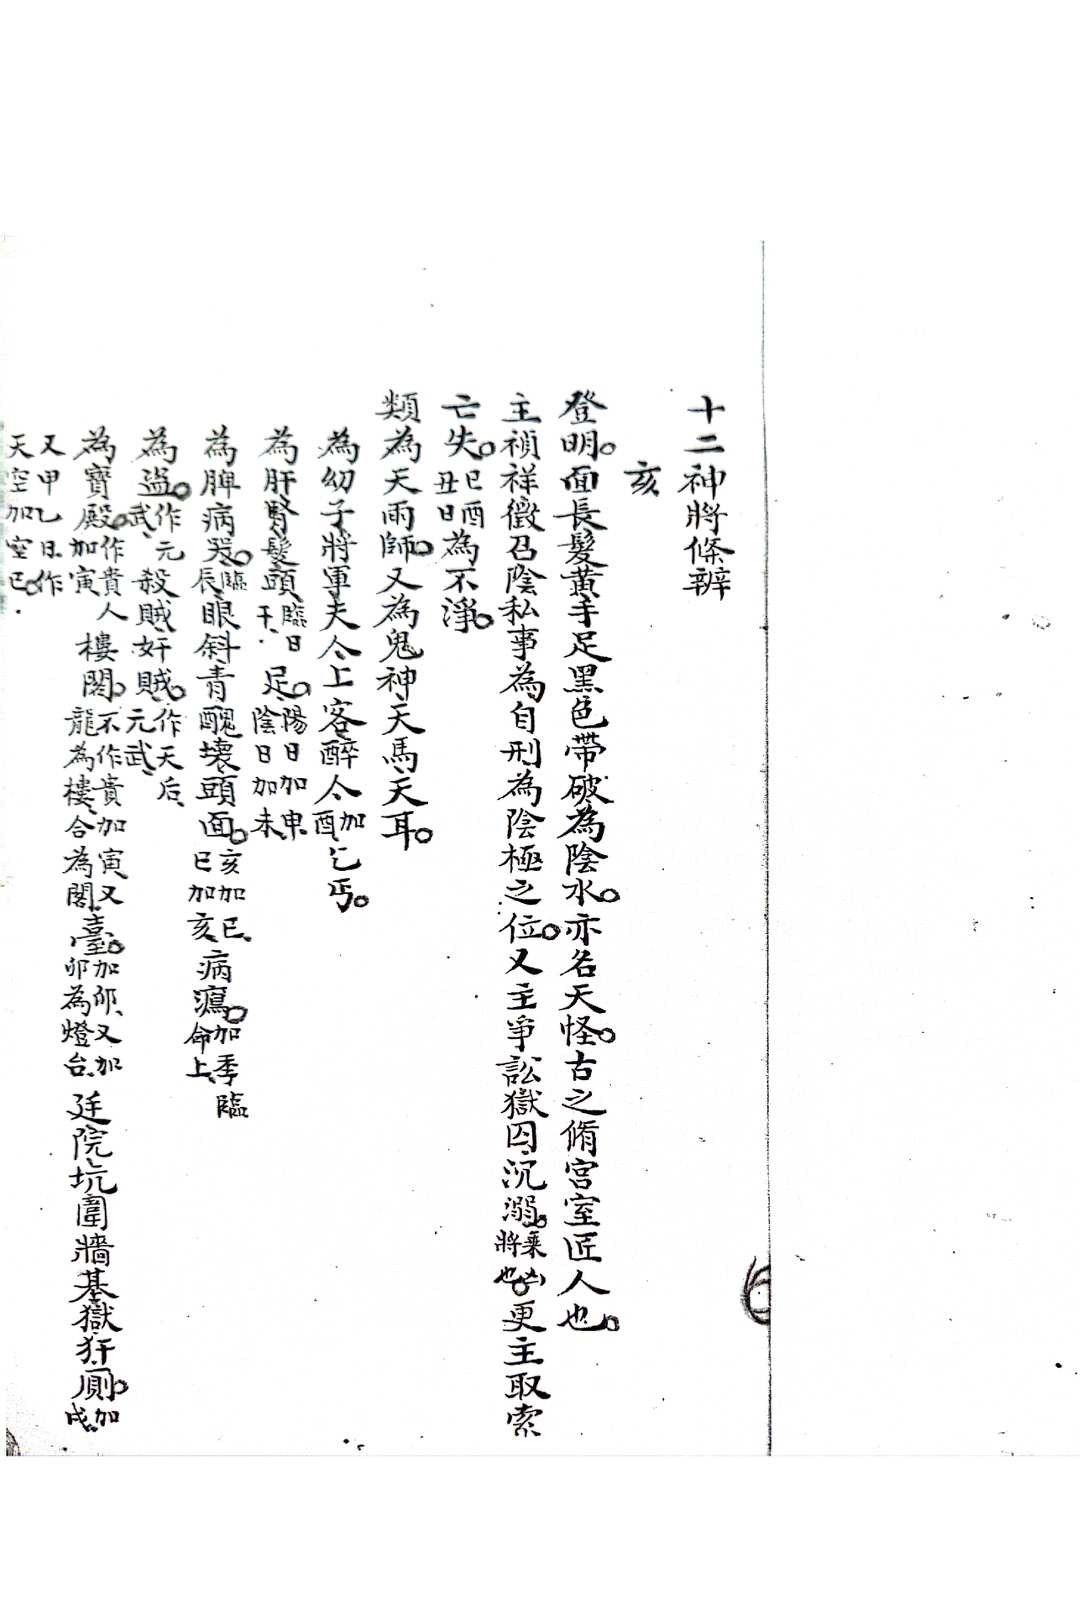 十二神將條辨
亥
登明。面長髮黃手足黑色帶破為陰水。亦名天怪。古之脩宮室匠人也。
主禎祥徵召陰私事為自刑為陰極之位。又主爭訟獄囚沉溺。乗凶將也更主取索
亡失。巳酉丑日為不淨。
類為天雨師。又為鬼神天馬天耳。
為幼子將軍夫人上客醉人加酉乞丐。
為肝腎髮頭臨日干足。陽日加申陰日加未
為脾病哭。臨辰眼斜青醜壞頭面。亥加巳巳加亥病瀉。加季臨命上
為盜。作元武殺賊奸賊。作天后元武
為寶殿。作貴人加寅樓閣。不作貴加寅又龍為樓合為閣臺。加卯又加卯為燈台廷院坑圍牆基獄犴厠。加戌
又甲乙日作
天空加空巳。